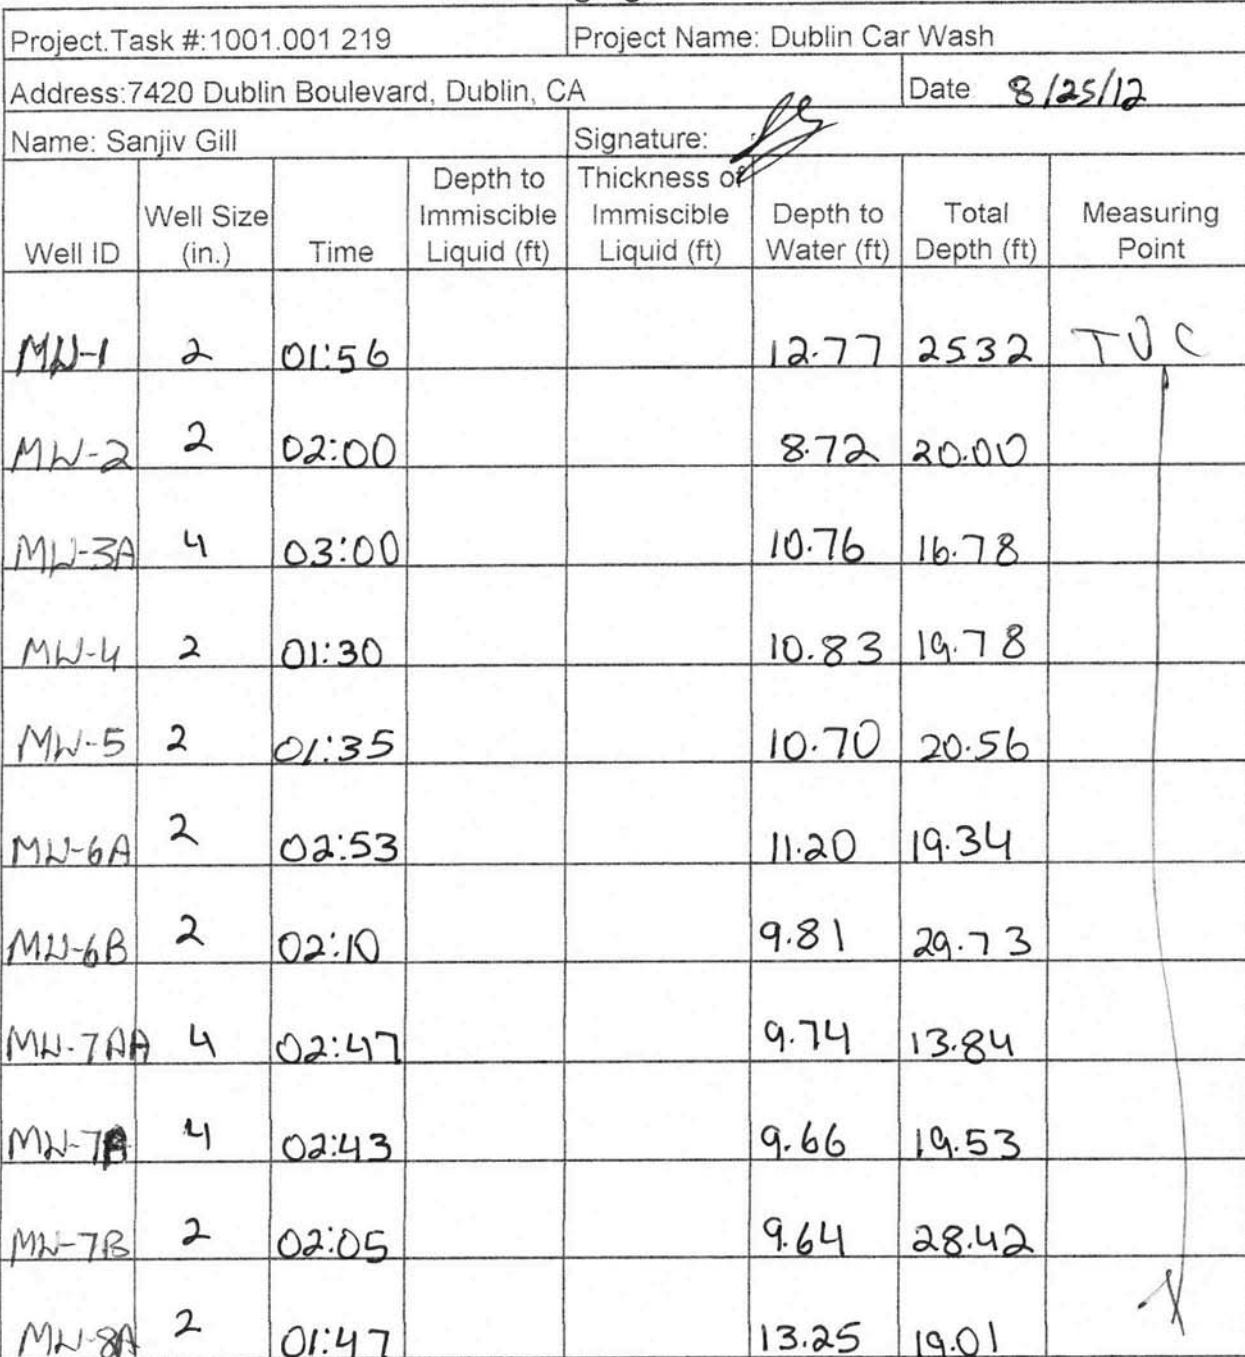 Project.Task #:1001.001 219 Project Name: Dublin Car Wash
Address:7420 Dublin Boulevard, Dublin, CA Date 8/25/12
Name: Sanjiv Gill Signature:
Well ID Well Size (in.) Time Depth to Immiscible Liquid (ft) Thickness of Immiscible Liquid (ft) Depth to Water (ft) Total Depth (ft) Measuring Point
MW-1 2 01:56 12.77 2532 TOC
MW-2 2 02:00 8.72 20.00
MW-3A 4 03:00 10.76 16.78
MW-4 2 01:30 10.83 19.78
MW-5 2 01:35 10.70 20.56
MW-6A 2 02:53 11.20 19.34
MW-6B 2 02:10 9.81 29.73
MW-7AA 4 02:47 9.74 13.84
MW-7A 4 02:43 9.66 19.53
MW-7B 2 02:05 9.64 28.42
MW-8A 2 01:47 13.25 19.01